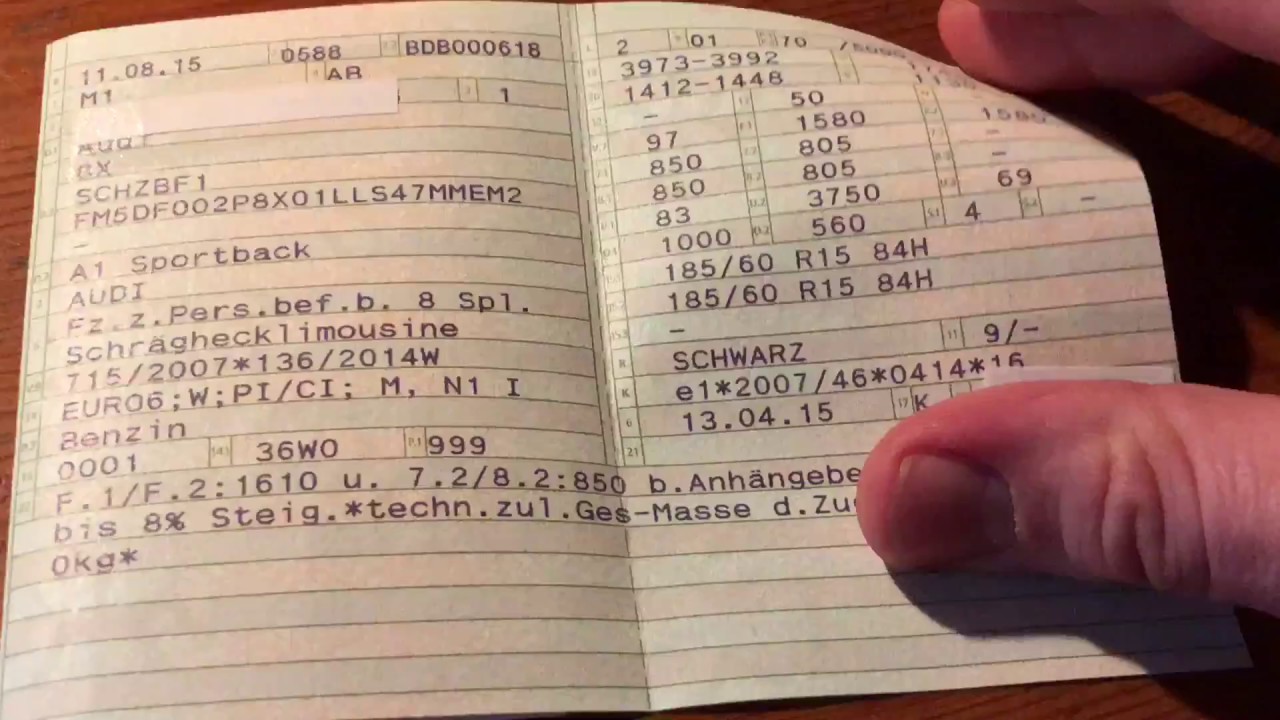 11.08.15 0588 BDB000618
M1 AB
1
AUDI
8X
SCHZBF1
FM5DF002P8X01LLS47MMEM2
–
A1 Sportback
AUDI
Fz.z.Pers.bef.b. 8 Spl.
Schräghecklimousine
715/2007*136/2014W
EURO6;W;PI/CI; M, N1 I
Benzin
0001 36W0 999
F.1/F.2:1610 u. 7.2/8.2:850 b.Anhängebe
bis 8% Steig.*techn.zul.Ges-Masse d.Zu
0kg*
2 01 70
3973-3992
1412-1448
– 50
97 1580
850 805 –
850 805 –
83 3750 69
1000 560 4 –
185/60 R15 84H
185/60 R15 84H
–
SCHWARZ 9/–
e1*2007/46*0414*16
13.04.15 K
21